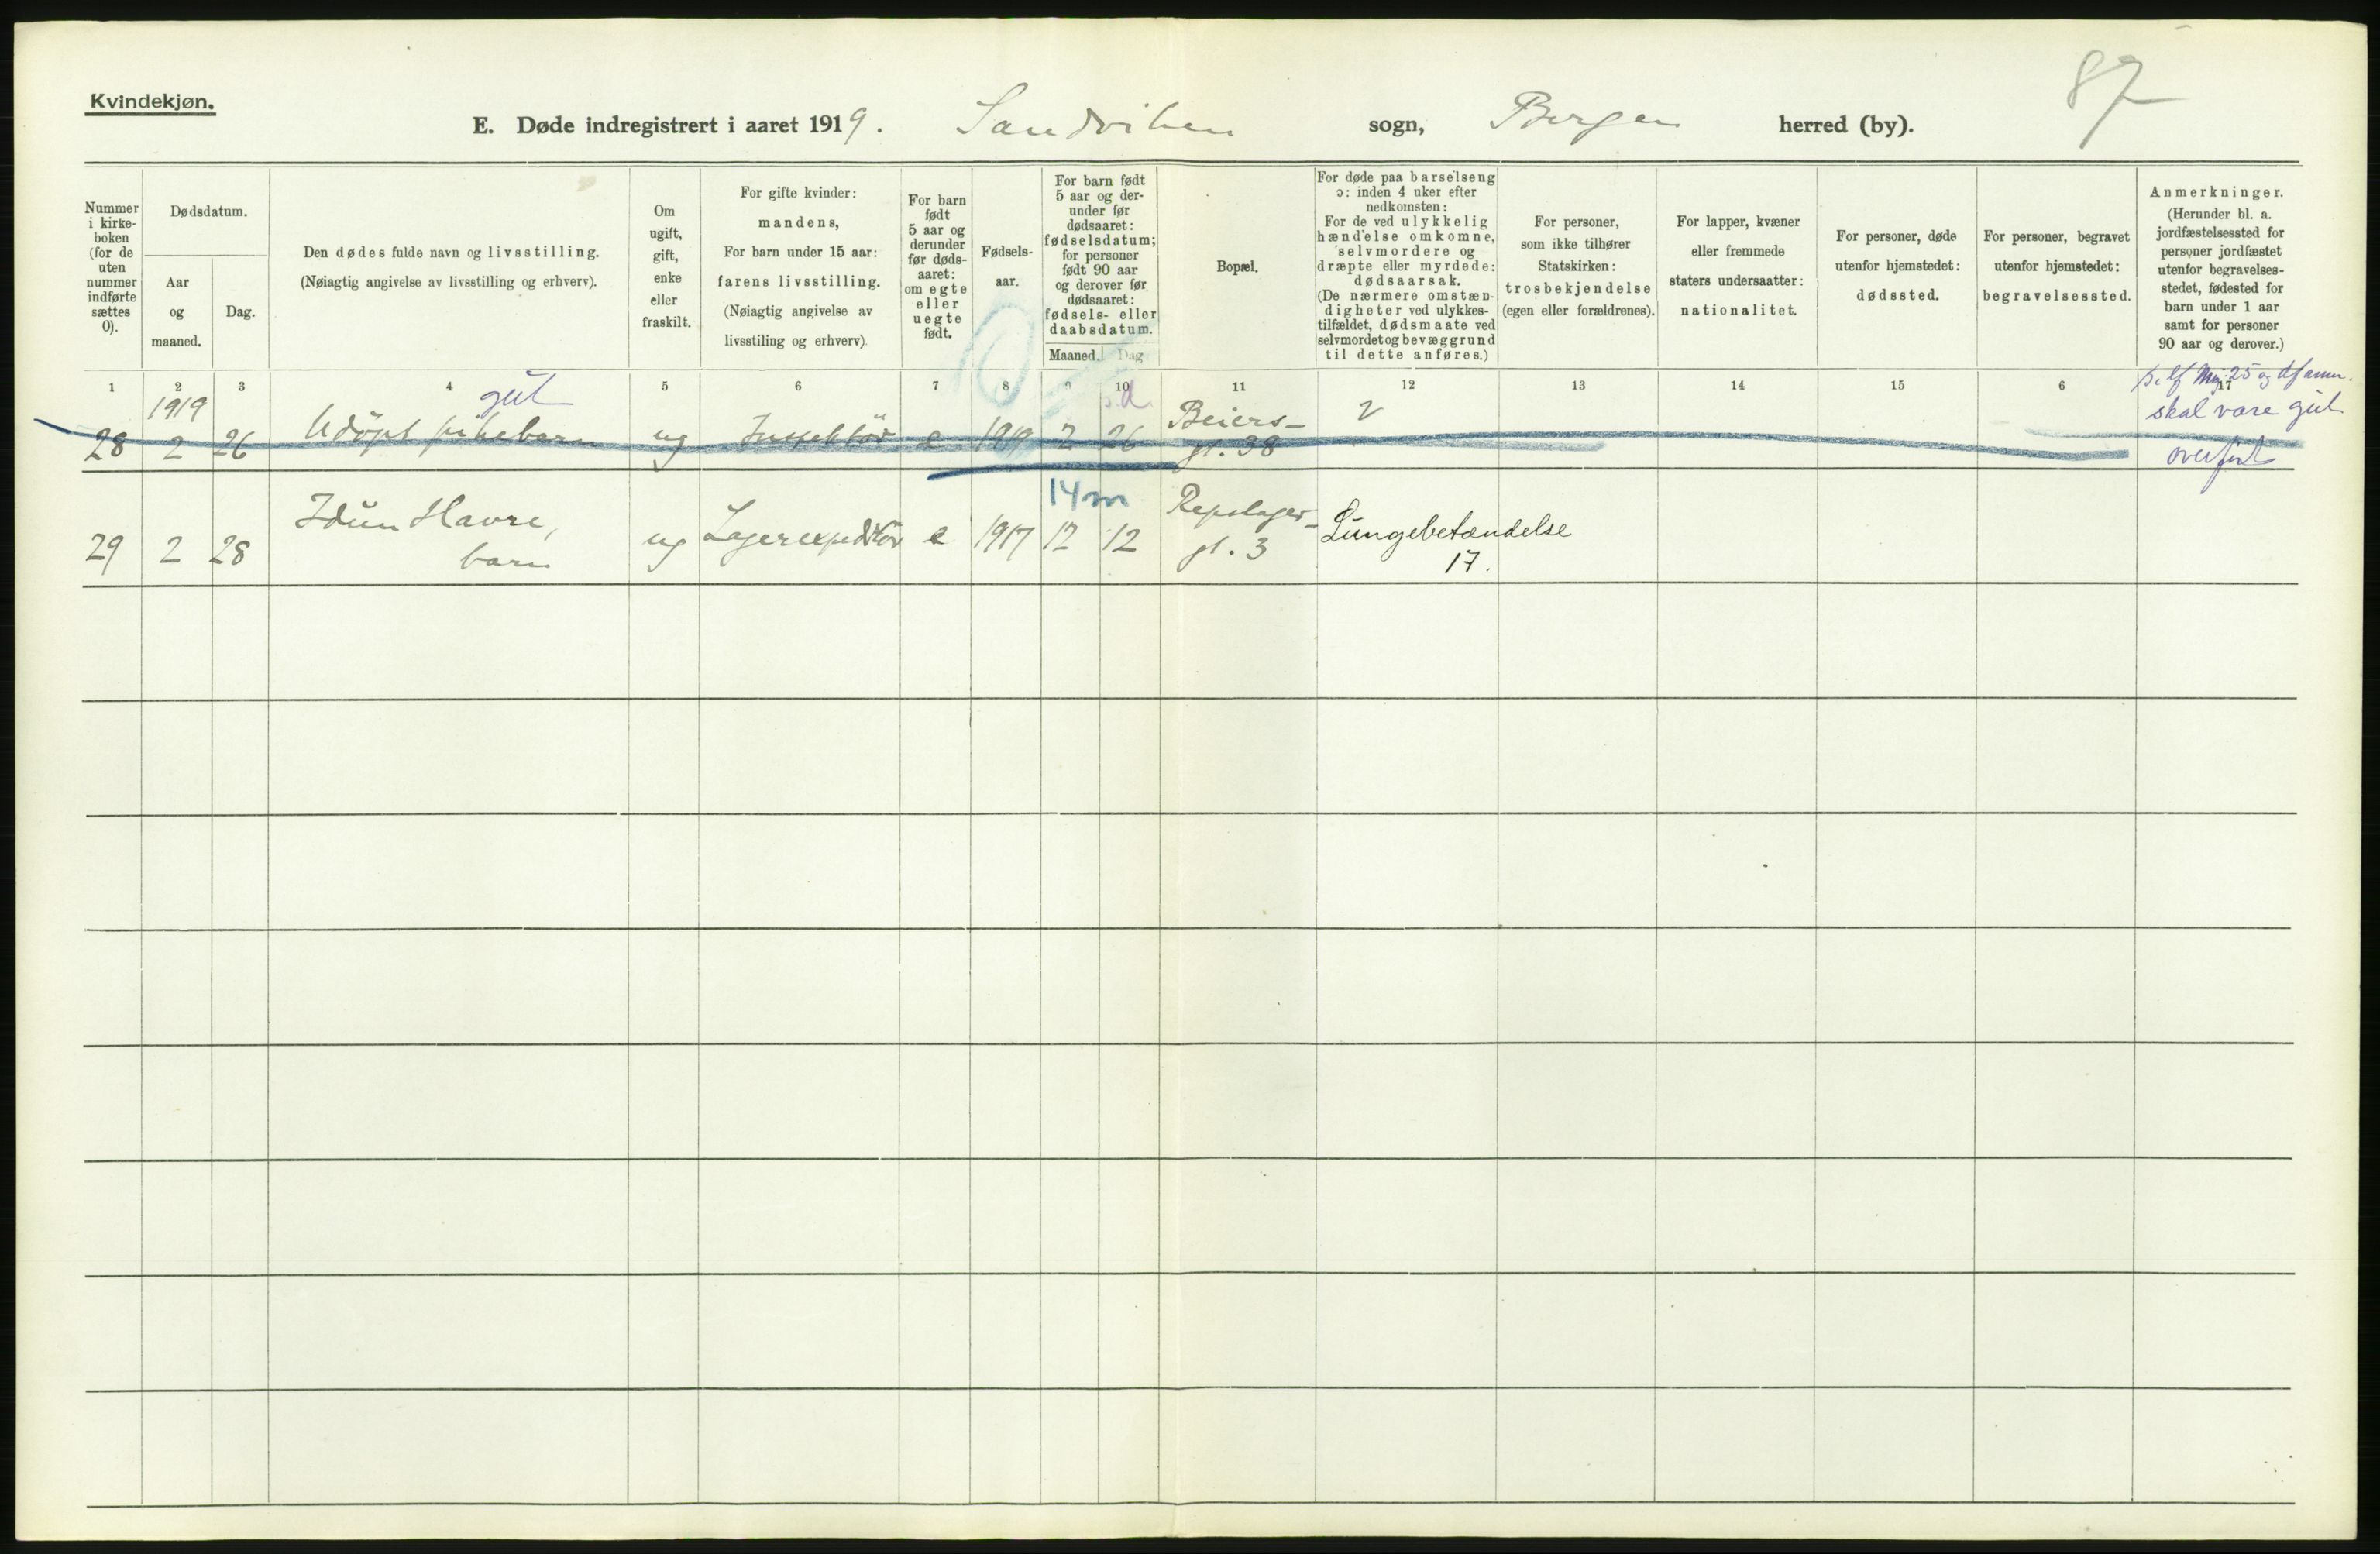 87
Kvindekjøn.
E. Døde indregistrert i aaret 1919. Sandviken sogn, Bergen herred (by).
Nummer
i kirke-
boken
(for de
uten
nummer
indførte
sættes
0).
Dødsdatum.
Aar
og
maaned.
Dag.
Den dødes fulde navn og livsstilling.
(Nøiagtig angivelse av livsstilling og erhverv).
Om
ugift,
gift,
enke
eller
fraskilt.
For gifte kvinder:
mandens,
For barn under 15 aar:
farens livsstilling.
(Nøiagtig angivelse av
livsstiling og erhverv).
For barn
født
5 aar og
derunder
før døds-
aaret:
om egte
eller
uegte
født.
Fødsels-
aar.
For barn født
5 aar og der-
under før
dødsaaret:
fødselsdatum;
for personer
født 90 aar
og derover før
dødsaaret:
fødsels- eller
daabsdatum.
Maaned. Dag
Bopæl.
For døde paa barselseng
ɔ: inden 4 uker efter
nedkomsten:
For de ved ulykkelig
hændelse omkomne,
selvmordere og
dræpte eller myrdede:
dødsaarsak.
(De nærmere omstæn-
digheter ved ulykkes-
tilfældet, dødsmaate ved
selvmordet og bevæggrund
til dette anføres.)
For personer,
som ikke tilhører
Statskirken:
trosbekjendelse
(egen eller forældrenes).
For lapper, kvæner
eller fremmede
staters undersaatter:
nationalitet.
For personer, døde
utenfor hjemstedet:
dødssted.
For personer, begravet
utenfor hjemstedet:
begravelsessted.
Anmerkninger.
(Herunder bl. a.
jordfæstelsessted for
personer jordfæstet
utenfor begravelses-
stedet, fødested for
barn under 1 aar
samt for personer
90 aar og derover.)
1 2 3 4 5 6 7 8 9 10 11 12 13 14 15 6 17
1919 gut s.d. Beiers- 2 skal være gut
28 2 26 Udöpt pikebarn ug Inspektör e 1919 2 26 gt. 38 overført
14 m
Idun Havre, Repslager- Lungebetændelse
29 2 28 barn ug Lagerexpeditör e 1917 12 12 gt. 3 17.